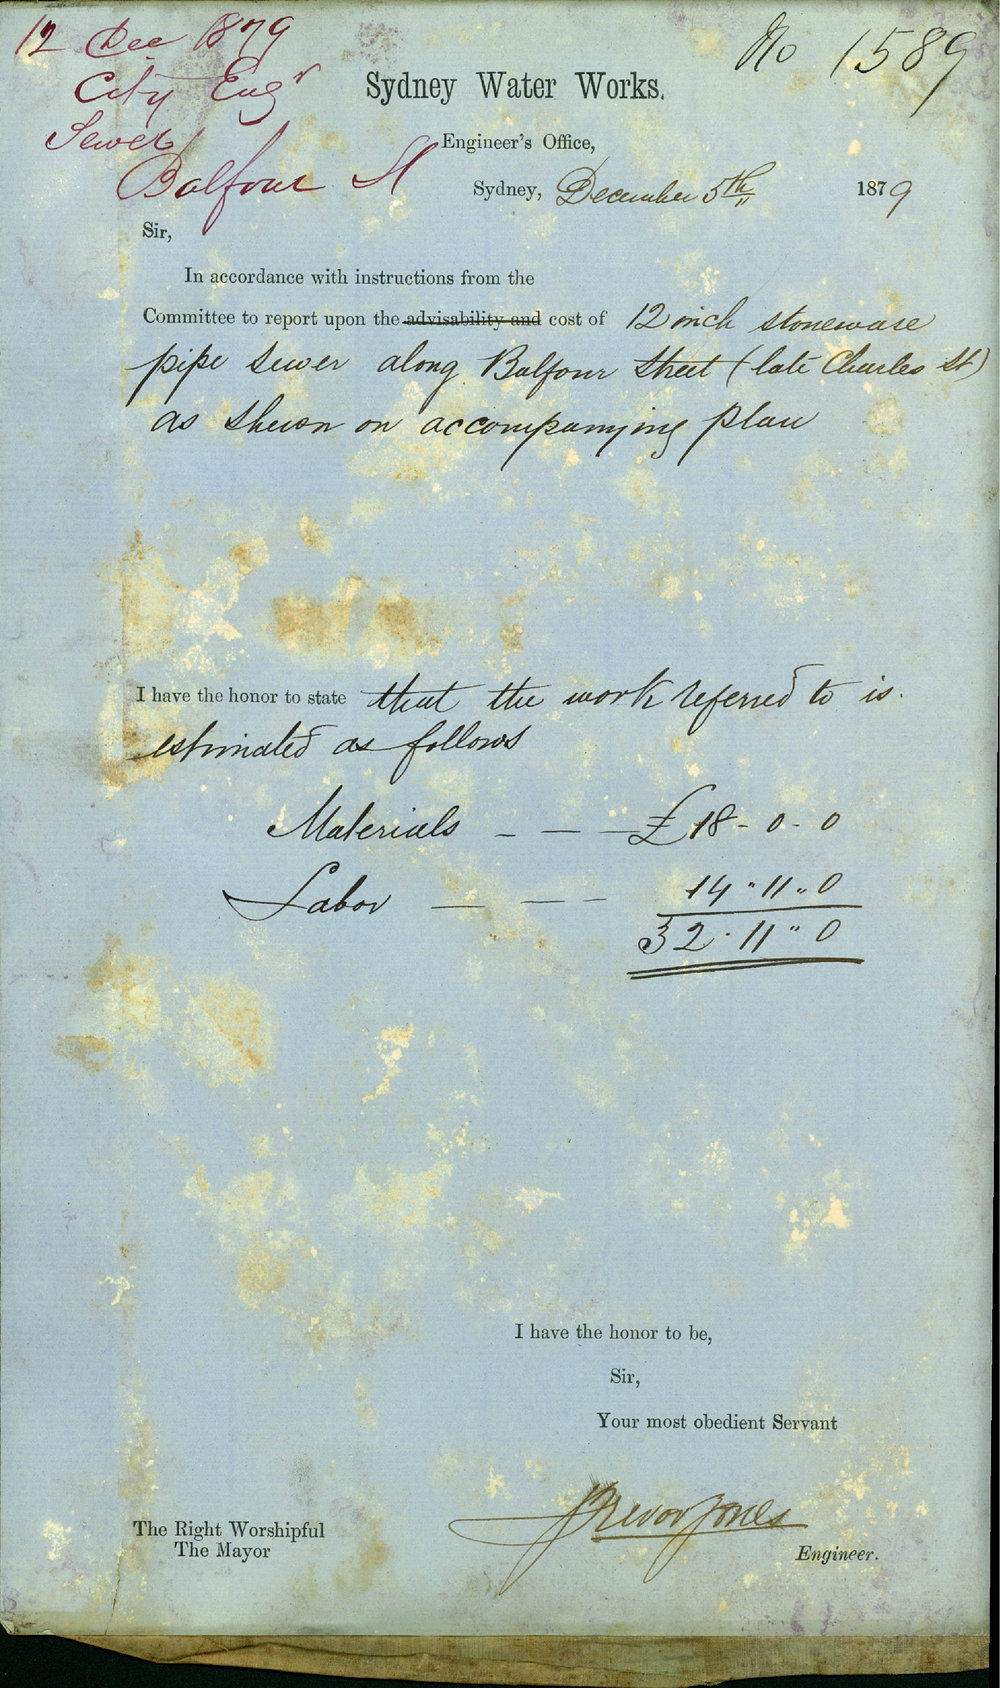 12 Dec 1879
City Engr
Sewer
Balfour St
No 1589
Sydney Water Works.
Engineer's Office,
Sydney, December 5th 1879
Sir,
In accordance with instructions from the
Committee to report upon the advisability and cost of 12 inch stoneware
pipe sewer along Balfour Street (late Charles St)
as shewn on accompanying plan
I have the honor to state that the work referred to is
estimated as follows
Materials — — — £18 - 0 - 0
Labor — — — 14 " 11 " 0
32 " 11 " 0
I have the honor to be,
Sir,
Your most obedient Servant
Trevor Jones
Engineer.
The Right Worshipful
The Mayor